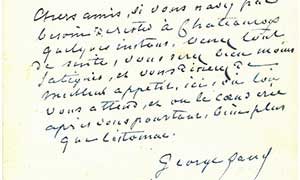 Chers amis, si vous n'avez pas
besoin de rester à Chateauroux
quelques instans, venez tout
de suite, vous serez bien moins
fatigués, et vous dinerez de
meilleur appetit, ici, où l'on
vous attend, et où le cœur crie
après vous pourtant, bien plus
que l'estomac.
George Sand